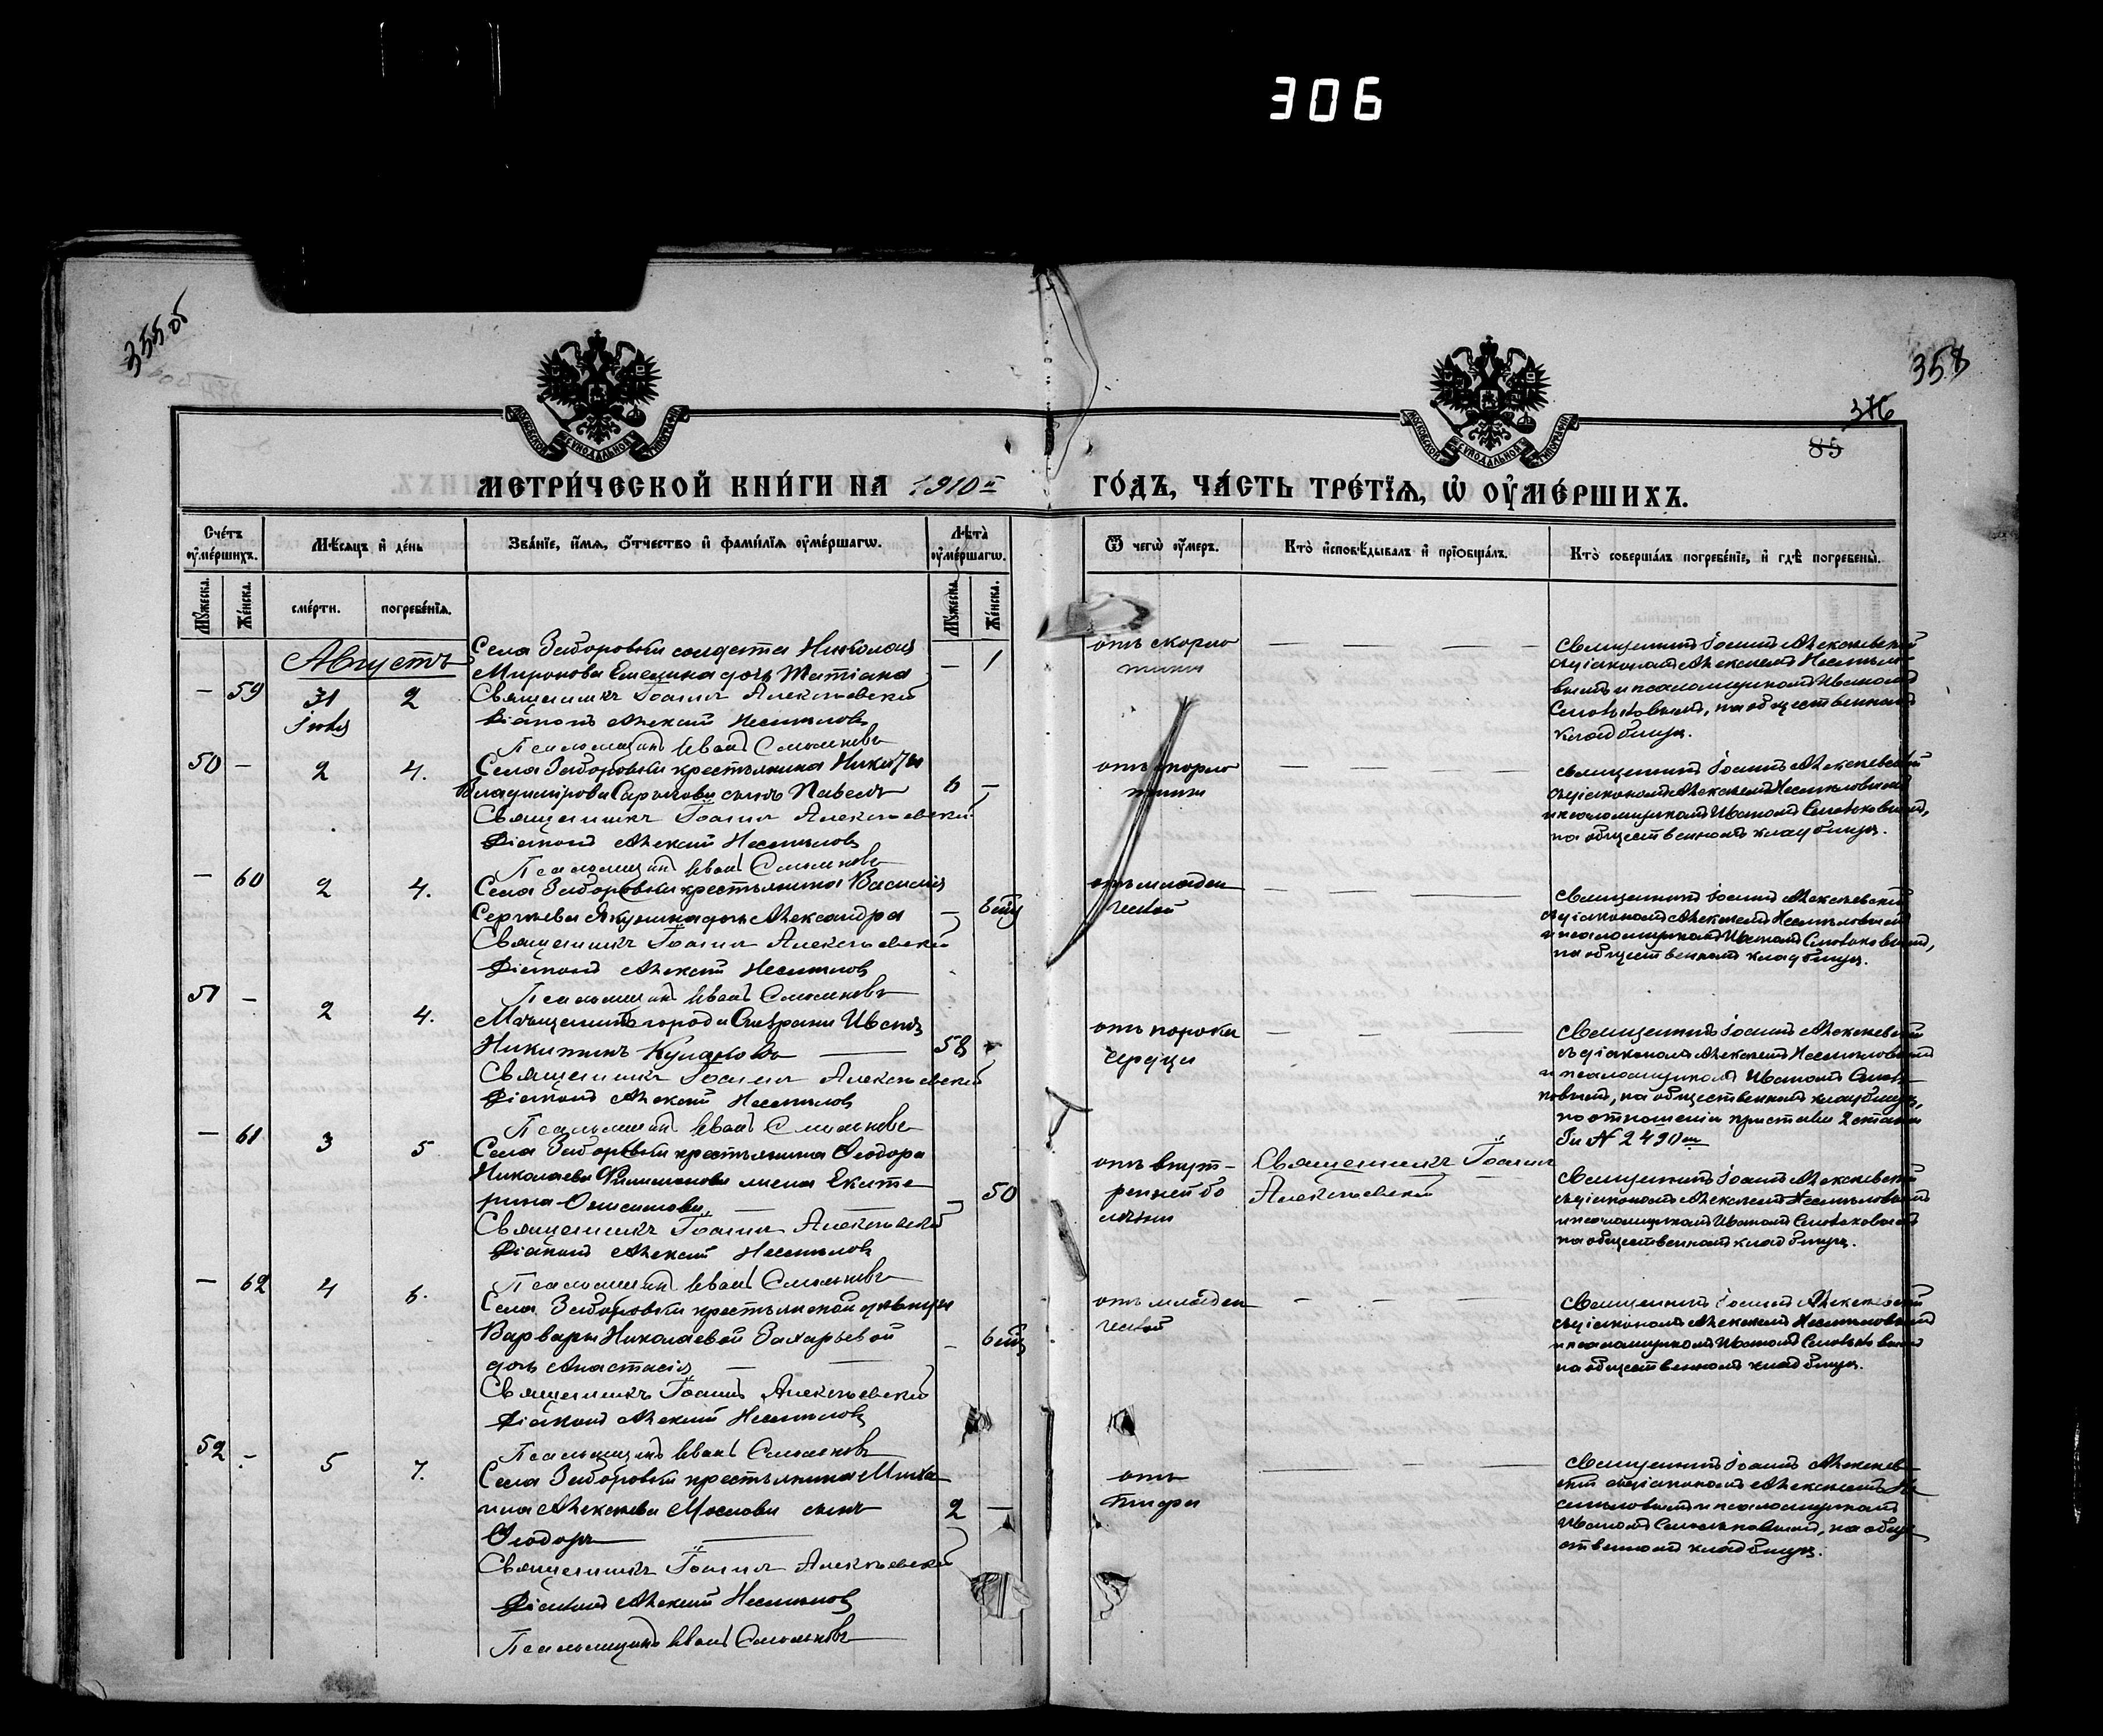 306
355 об
358
376
85
МОСКОВСКОЙ СѴНОДАЛЬНОЙ ТИПОГРАФІИ
МОСКОВСКОЙ СѴНОДАЛЬНОЙ ТИПОГРАФІИ
МЕТРИ́ЧЕСКОЙ КНИ́ГИ НА 1910й ГО́ДЪ, ЧА́СТЬ ТРЕ́ТІѦ, Ѡ҆ ОУ҆МЕ́РШИХЪ.
Сче́тъ оу҆ме́ршихъ.
Мѣ́сѧцъ и҆ де́нь
Зва́нїе, и҆́мѧ, ѻ҆́тчество и҆ фами́лїѧ оу҆ме́ршагѡ.
Лѣ́та оу҆ме́ршагѡ.
Ѿ чегѡ̀ оу҆́меръ.
Кто̀ и҆сповѣ́дывалъ и҆ прїѡбща́лъ.
Кто̀ соверша́лъ погребе́нїе, и҆ гдѣ̀ погребены̀.
Мꙋ́жеска.
Же́нска.
сме́рти.
погребе́нїѧ.
Мꙋ́жеска.
Же́нска.
Августъ
— 59 31 Іюля 2
Села Заборовки солдата Николая
Миронова дочь Татіана — 1
Священникъ Іоаннъ Алексѣевскій
Діаконъ Алексій Несмѣловъ
Псаломщикъ Иванъ Смольковъ
отъ скорло
тины
Священникъ Іоаннъ Алексѣевскій
съ діакономъ Алексіемъ Несмѣло-
вымъ и псаломщикомъ Иваномъ
Смольковымъ, на общественномъ
кладбищѣ.
50 — 2 4.
Села Заборовки крестьянина Никиты
Владимірова сынъ Павелъ 6 —
Священникъ Іоаннъ Алексѣевскій
Діаконъ Алексій Несмѣловъ
Псаломщикъ Иванъ Смольковъ
отъ скорло
тины
Священникъ Іоаннъ Алексѣевскій
съ діакономъ Алексіемъ Несмѣловымъ
и псаломщикомъ Иваномъ Смольковымъ,
на общественномъ кладбищѣ.
— 60 2 4.
Села Заборовки крестьянина Василія
Сергѣева Якунина дочь Александра —
Священникъ Іоаннъ Алексѣевскій
Діаконъ Алексій Несмѣловъ
Псаломщикъ Иванъ Смольковъ
отъ младен
ческой
Священникъ Іоаннъ Алексѣевскій
съ діакономъ Алексіемъ Несмѣловымъ
и псаломщикомъ Иваномъ Смольковымъ,
на общественномъ кладбищѣ.
51 — 2 4.
Мѣщанинъ города Сызрани Иванъ
Никитинъ Кулаковъ 58 —
Священникъ Іоаннъ Алексѣевскій
Діаконъ Алексій Несмѣловъ
Псаломщикъ Иванъ Смольковъ
отъ порока
сердца
Священникъ Іоаннъ Алексѣевскій
съ діакономъ Алексіемъ Несмѣловымъ
и псаломщикомъ Иваномъ Смоль-
ковымъ, на общественномъ кладбищѣ,
по отношенію пристава 2 стана
за № 2490
— 61 3 5
Села Заборовки крестьянина Ѳеодора
Николаева Филимонова жена Екате-
рина Онисимова — 50
Священникъ Іоаннъ Алексѣевскій
Діаконъ Алексій Несмѣловъ
Псаломщикъ Иванъ Смольковъ
отъ внут-
ренней бо
лѣзни
Священникъ Іоаннъ
Алексѣевскій
Священникъ Іоаннъ Алексѣевскій
съ діакономъ Алексіемъ Несмѣловымъ
и псаломщикомъ Иваномъ Смольковымъ
на общественномъ кладбищѣ.
— 62 4 6.
Села Заборовки крестьянской дѣвицы
Варвары Николаевой Захарьевой —
дочь Анастасія
Священникъ Іоаннъ Алексѣевскій
Діаконъ Алексій Несмѣловъ
Псаломщикъ Иванъ Смольковъ
отъ младен
ческой
Священникъ Іоаннъ Алексѣевскій
съ діакономъ Алексіемъ Несмѣловымъ
и псаломщикомъ Иваномъ Смольковымъ
на общественномъ кладбищѣ.
52 — 5 7.
Села Заборовки крестьянина Миха
ила Алексѣева Маслова сынъ 2 —
Ѳеодоръ
Священникъ Іоаннъ Алексѣевскій
Діаконъ Алексій Несмѣловъ
Псаломщикъ Иванъ Смольковъ
отъ
Священникъ Іоаннъ Алексѣев-
скій съ діакономъ Алексіемъ Не-
смѣловымъ и псаломщикомъ
Иваномъ Смольковымъ, на обще
ственномъ кладбищѣ.